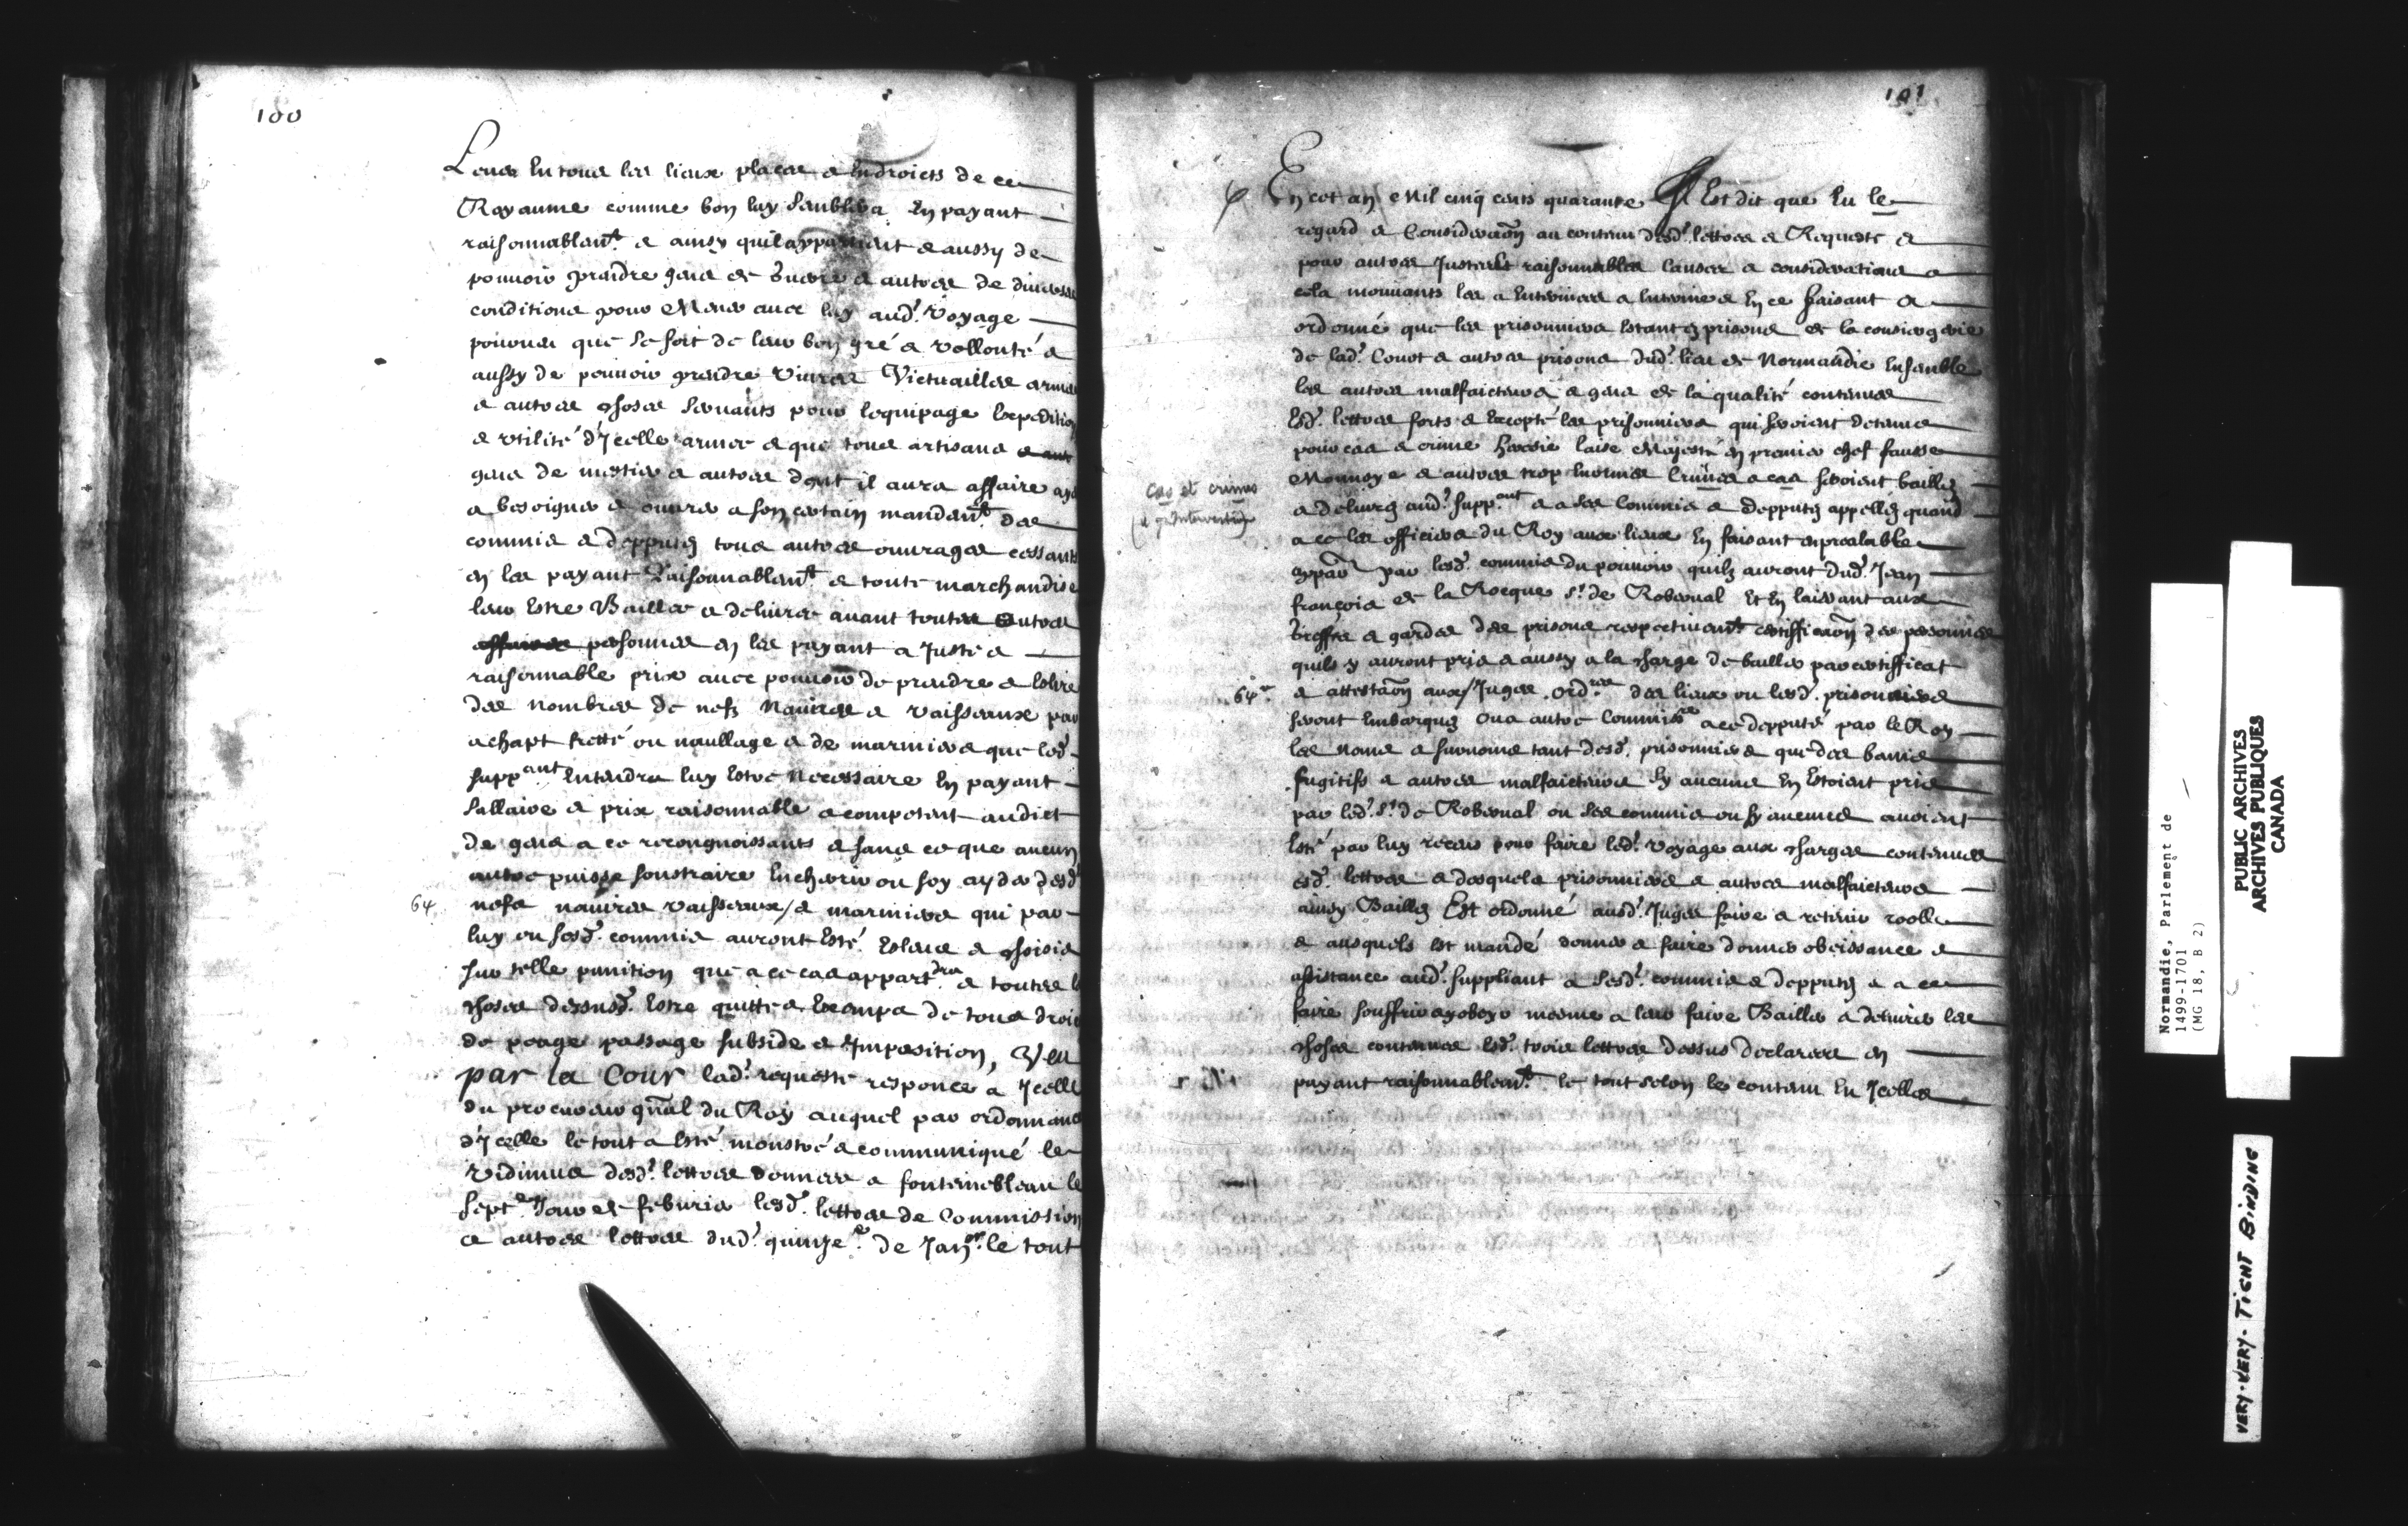 100
Lever en tous les lieux places & endroicts de ce
Royaume comme bon luy semblera en payant
raisonnablem.t & ainsy quil appartient & aussy de
pouvoir prendre gens de guerre & autres de diverses
conditions pour Mener avec luy aud.t Voyage
pourveu que ce soit de leur bon gré & vollonté &
aussy de pouvoir prendre vivres Victuailles armes
& autres choses servants pour lequipage lexpedition
& utilité d'Icelle armee & que tous artisans
gens de mestier & autres dont il aura affaire ayt
a besoigner & ouvrer a son certain mandem.t des
commis & depputez tous autres ouvrages cessants
en les payant Raisonnablem.t & toute marchandise
leur estre Baillee & delivree avant toutes autres
personnes en les payant a Juste &
raisonnable prix avec pouvoir de prendre & eslire
des nombres de nefz Navires & vaisseaux par
achapt frette ou naullage & de mariniers que led.
supp.ant entendra luy estre necessaire En payant
sallaire & prix raisonnable & compotent au dict
de gens a ce recongnoissants & sans ce que aucun
autre puisse soustraire encherir ou soy ayder desd.
64
nefs navires vaisseaux & mariniers qui par
luy ou sesd. commis auront esté Esleus & choisis
sur telle punition que a ce cas appart.dra & toutes l
choses dessusd. estre quittes & exemps de tous droi
de peage passage subside & Imposition, Veu
par la Cour lad. requeste responce a Icelle
du procureur gñal du Roy auquel par ordonnance
d'Icelle le tout a esté monstré & communiqué le
vidimus desd. lettres donnees a fontenebleau le
sept.e Jour de febvrier lesd. lettres de Commission
& autres lettres dud. quinze.e de Jan.er le tout
101
En cet an Mil cinq cents quarante Il Est dit que Eu le
regard & Consideraõn au contenu desd. lettres & Requeste &
pour autres Justes et raisonnables causes & considerations a
cela mouvants les a Enterinees & enterine & En ce faisant a
ordonné que les prisonniers estantz prisons de la consiergerie
de lad. Court & autres prisons dud. lieu de Normandie Ensemble
les autres malfaicteurs & gens de la qualité contenues
Esd. lettres fors & excepté les prisonniers qui seroient detenus
pour cas & crime heresie laise Majesté en premier chef fausse
Monnoye & autres trop enormes Crimes & cas seroient baillez
cas et crimes
a delivrez aud. supp.ant & a ses Commis & depputez appellez quand
a ce les officiers du Roy aux lieux En faisant enprealable
par lesd. commis du pouvoir quilz auront dud. Jean
françois de la Rocque s.r de Roberval Et En laissant aux
greffes & gardes des prisons respectivem.t certifficaõn des personnes
quils y auront pris & aussy a la charge de bailler par certifficat
64.e
& attestaõn aux Juges ord.res des lieux ou lesd. prisonniers
seront Embarquez ou a autre Commiss.re a ce depputé par le Roy
les noms & surnoms tant desd. prisonniers que des bannis
fugitifs & autres malfaicteurs sy aucuns En Estoient pris
par led. S.r de Roberval ou ses commis ou sy aucuns avoient
Esté par luy receus pour faire led. voyage aux charges contenues
esd. lettres & desquels prisonniers & autres malfaicteurs
ainsy Baillez Est ordonné ausd. Juges faire & retenir roolle
& ausquels est mandé donner & faire donner obeissance &
assistance aud. suppliant & sesd. commis & depputez & a ce
faire souffrir & obeyr mesme a leur faire Bailler & delivrer les
choses contenues Esd. trois lettres dessus declarees en
payant raisonnablem.t le tout selon le contenu En Icelles
Normandie, Parlement de
1499-1701
(MG 18, B 2)
PUBLIC ARCHIVES
ARCHIVES PUBLIQUES
CANADA
VERY-VERY-TIGHT BINDING